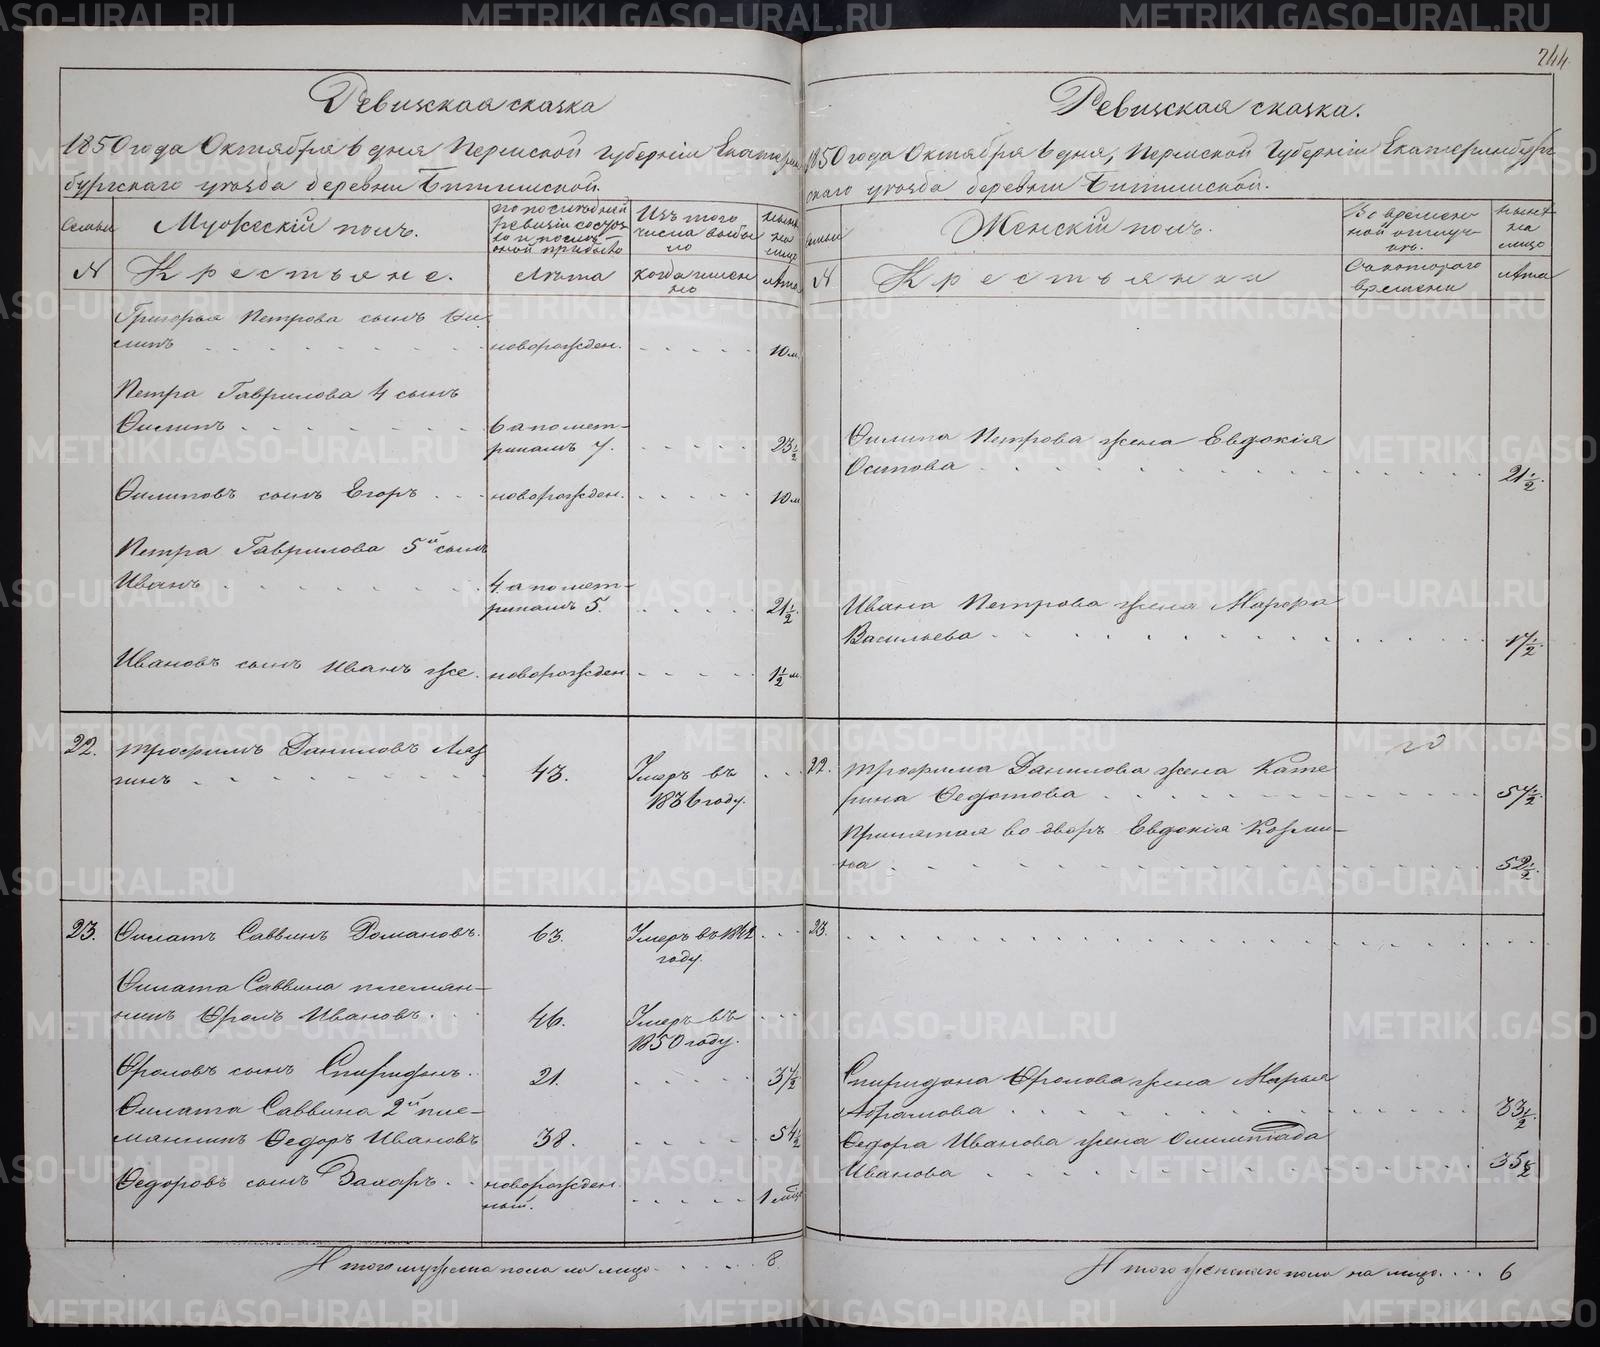 244
Ревизская сказка
1850 года Октября 6 дня Пермской Губерніи Екатерин
бургскаго уѣзда деревни
Семьи
Мужескій полъ.
по послѣдней
ревизіи состоя
ло и послѣ
оной прибыло
Изъ того
числа выбы
ло
нынѣ
на
лицо
№
Крестьяне.
Лѣта
когда имен
но
лѣта
Григорья Петрова сынъ Фи
липъ
новорожден.
10 м.
Петра Гаврилова 4 сынъ
Филипъ
6 а по мет-
рикамъ 7.
23½
Филиповъ сынъ Егоръ
новорожден.
10 м
Петра Гаврилова 5й сынъ
Иванъ
4 а по мет-
рикамъ 5.
21½
Ивановъ сынъ Иванъ же.
новорожден.
1½ м.
22.
Трофимъ Даниловъ
43.
Умеръ въ
1836 году.
23.
Филатъ Саввинъ Романовъ.
63.
Умеръ въ 1842
году.
Филата Саввина племян-
никъ Фролъ Ивановъ.
46.
Умеръ въ
1850 году.
Фроловъ сынъ Спиридонъ.
21.
37½
Филата Саввина 2й пле-
мянникъ Федоръ Ивановъ
38.
54½
Федоровъ сынъ Захаръ
новорожден
ный.
1 мѣц
Итого мужеска пола на лицо 8.
Ревизская сказка.
1850 года Октября 6 дня, Пермской Губерніи Екатеринбург
скаго уѣзда деревни
Семьи
Женскій полъ.
Во времен
ной отлуч-
кѣ.
нынѣ
на
лицо
№
Крестьянки
Съ котораго
времени
лѣта
Филипа Петрова жена Евдокія
Осипова
21½.
Ивана Петрова жена Марфа
Васильева
17½.
22.
Трофима Данилова жена Кате
рина Федотова
57½.
Принятая во дворъ Евдокія Козми-
на
52½.
23.
Спиридона Фролова жена Марья
Абрамова
33½.
Федора Иванова жена Олимпіада
Иванова
35½
Итого женскаго пола на лицо 6
METRIKI.GASO-URAL.RU